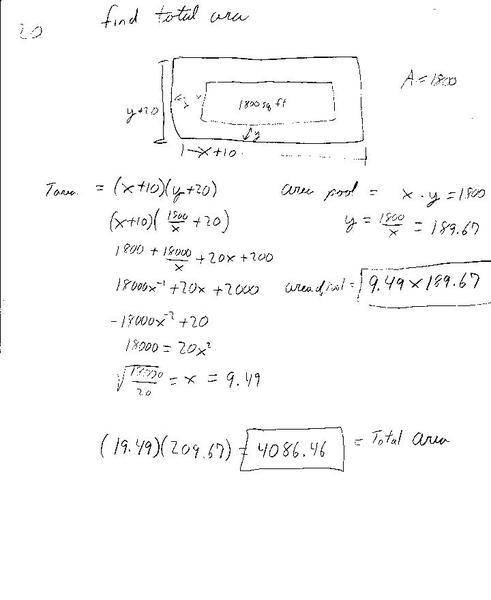 20 find total area
A = 1800
1800 sq ft
y+20
y
x+10
T area = (x+10)(y+20)
area pool = x · y = 1800
(x+10)(1800/x + 20)
y = 1800/x = 189.67
1800 + 18000/x + 20x + 200
18000x⁻¹ + 20x + 2000
area of pool = 9.49 x 189.67
-18000x⁻² + 20
18000 = 20x²
√18000/20 = x = 9.49
(19.49)(209.67) = 4086.46 = Total area